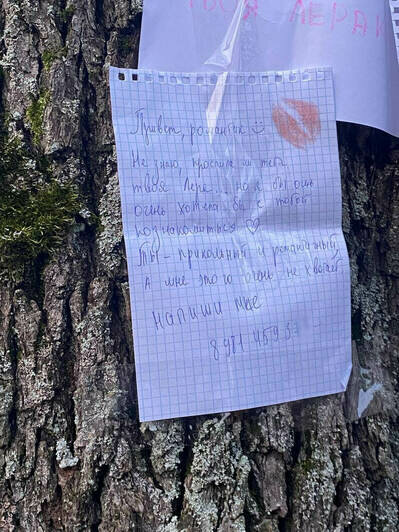 ТВОЯ ЛЕРА
Привет, романтик
Не знаю, простила ли тебя
твоя Лера... но я бы очень
очень хотела бы с тобой
познакомиться ♡
Ты - прикольный и романтичный
А мне этого очень не хватает
НАПИШИ мне